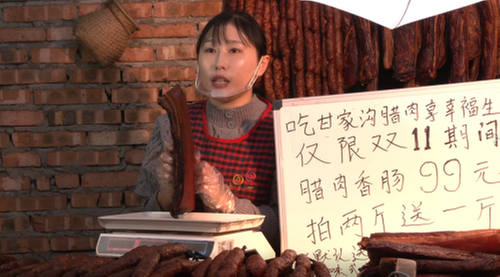 吃甘家沟腊肉享幸福生
仅限双11期间
腊肉香肠99元
拍两斤送一斤